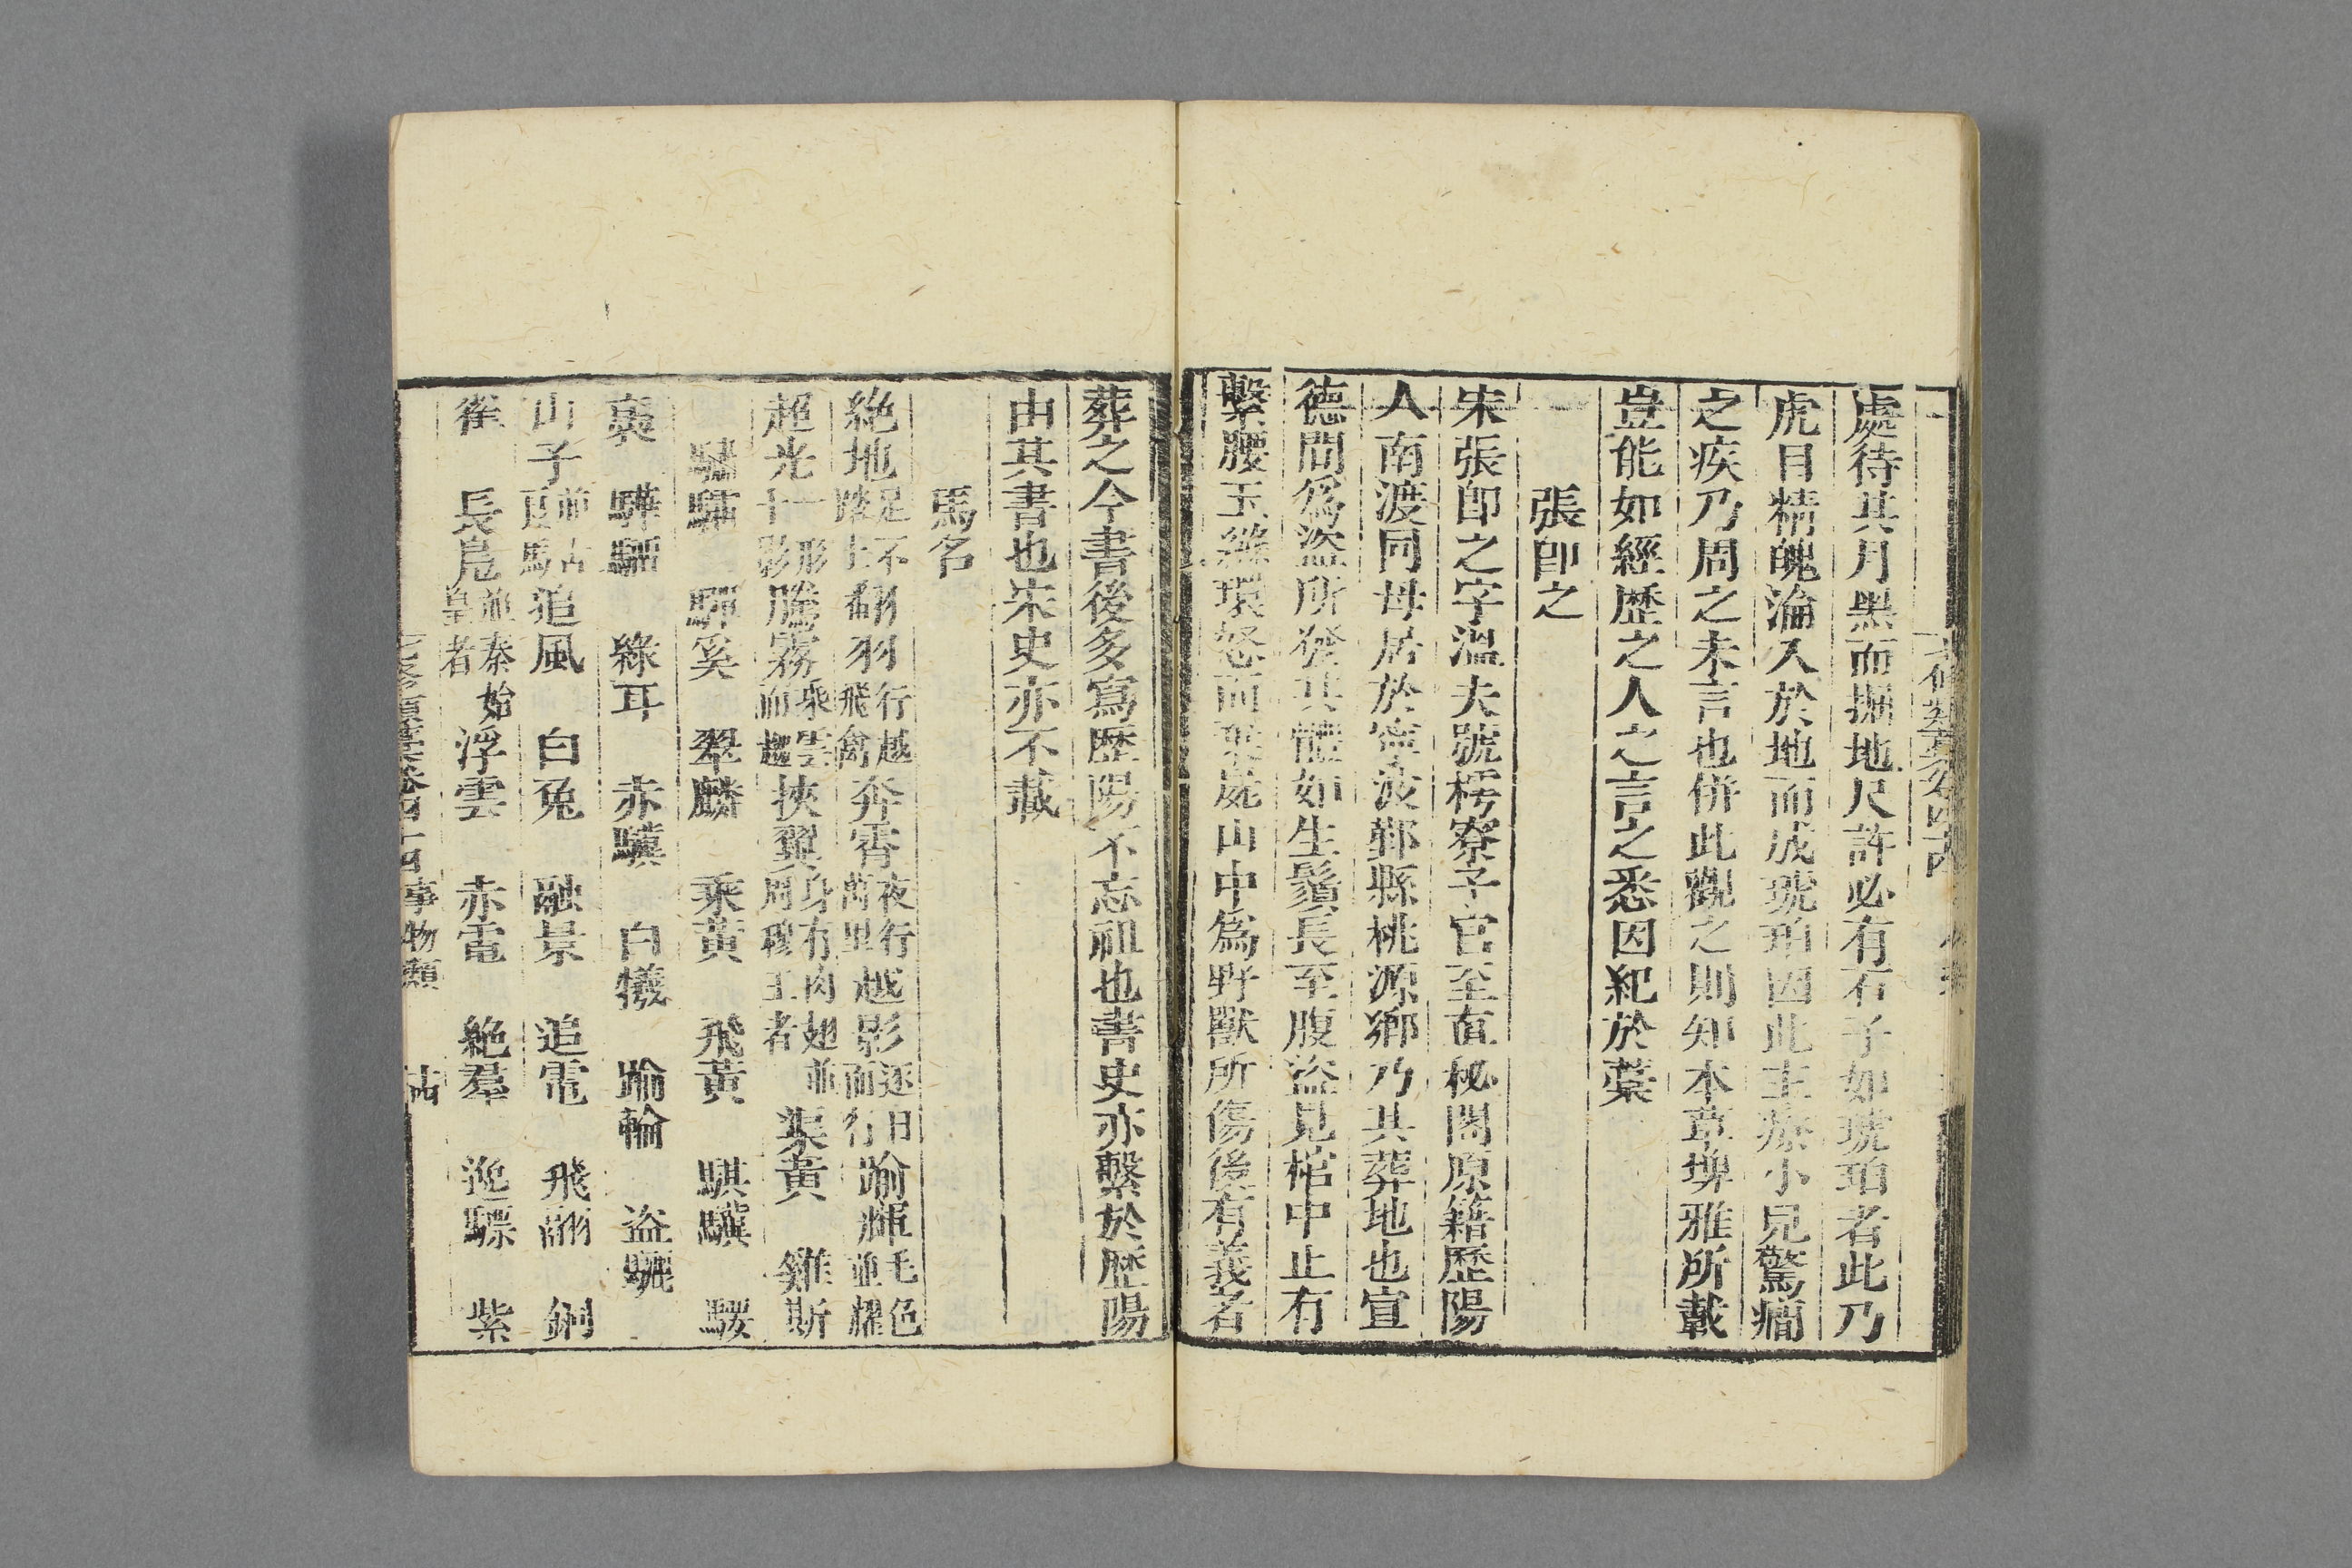 處待其月黑而掘地尺許必有石子如琥珀者此乃
虎目精魄淪入於地而成琥珀因此主療小兒驚癇
之疾乃周之未言也併此觀之則知本草埤雅所載
豈能如經歷之人之言之悉因紀於藁
張卽之
宋張卽之字溫夫號樗寮子官至直秘閣原籍歷陽
人南渡同母居於寧波鄞縣桃源鄉乃其葬地也宣
德間爲盜所發其體如生鬚長至腹盜見棺中止有
繫腰玉縧環怒而棄屍山中爲野獸所傷後有義者
葬之今書後多寫歷陽不忘祖也書史亦繫於歷陽
由其書也宋史亦不載
馬名
絶地足不踐土翻羽行越飛禽奔霄夜行萬里越影逐日而行踰輝毛色並耀
超光一形十影騰霧乘雲而趨挾翼身有肉翅並周穆王者渠黃 雞斯
驌驦 驒奚 翠麟 乘黃 飛黃 騏驥 騕
褭 驊騮 綠耳 赤驥 白犧 踰輪 盜驪
山子並古良馬追風 白兔 融景 追電 飛翮 銅
雀 長鳧並秦始皇者浮雲 赤電 絶羣 逸驃 紫
七修類藁卷四十四 事物類